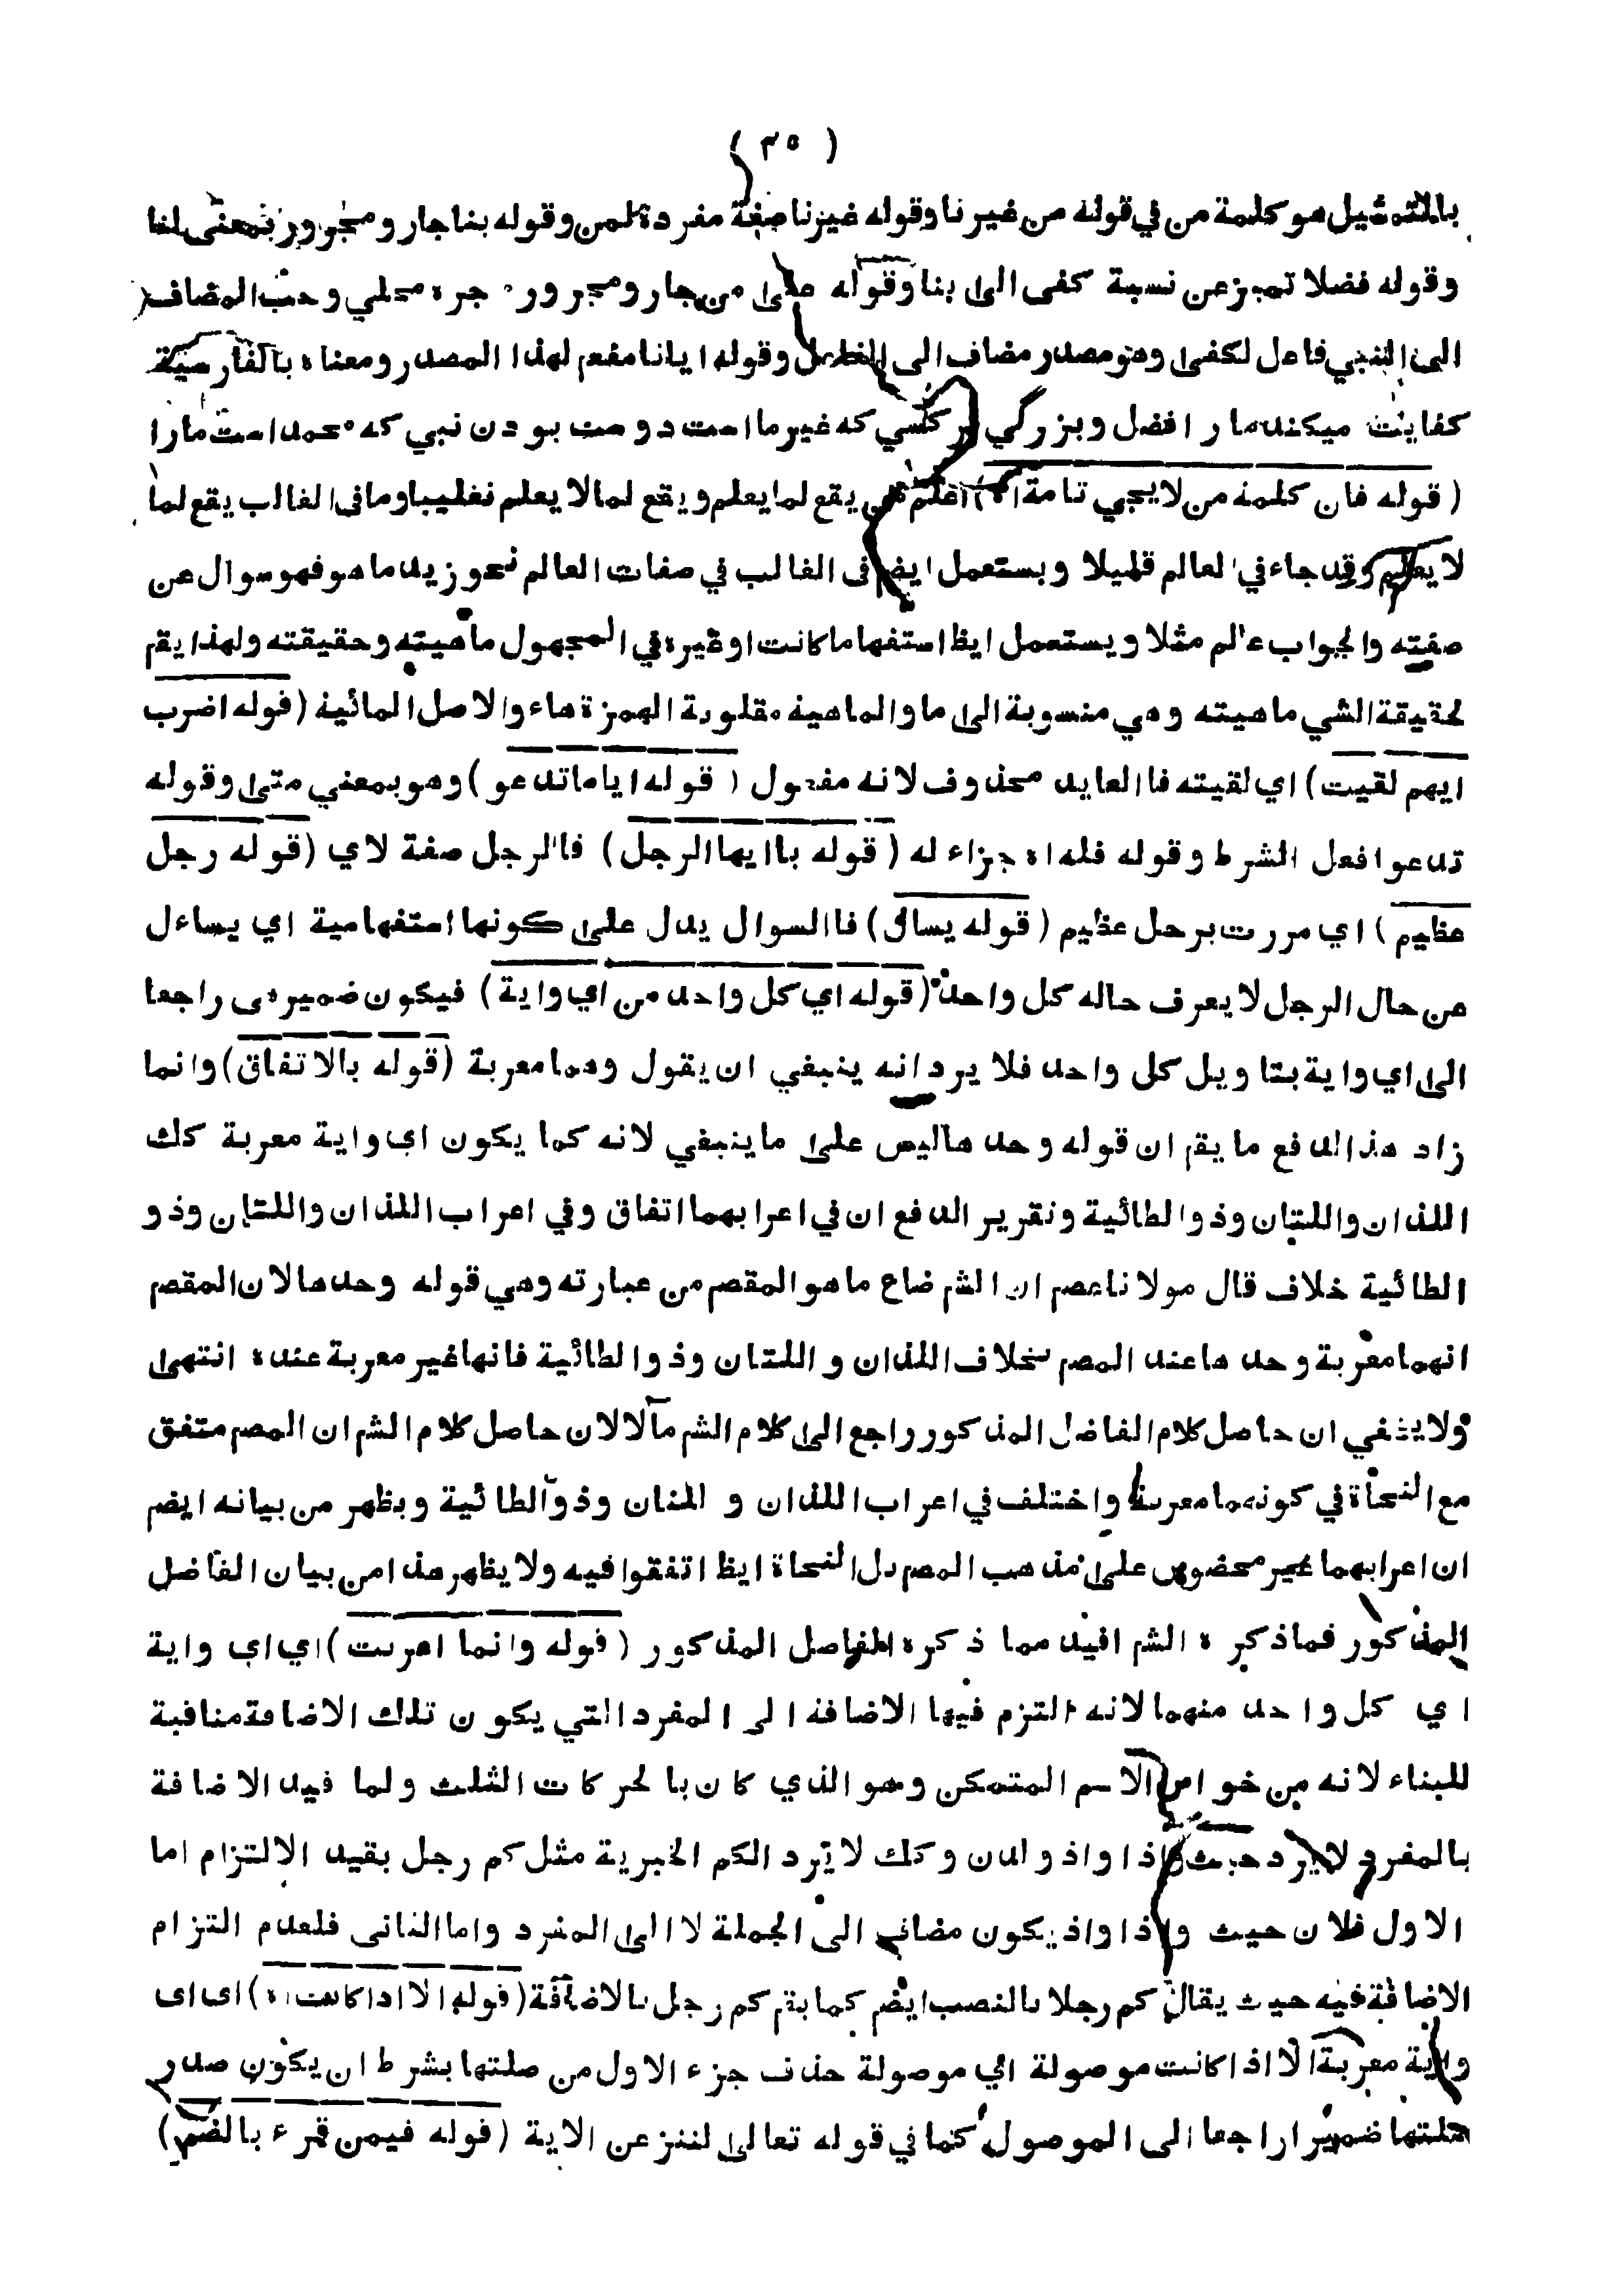 ( ٣٥ )
بالتمثيل هو كلمة من في قوله من غيرنا وقوله غيرنا صفة مفردة لمن وقوله بنا جار و مجرور بمعنى لنا
وقوله فضلا تميز عن نسبة كفى الى بنا وقوله على من جار ومجرور جره محلي وحب المضاف
الى النبي فاعل لكفى وهو مصدر مضاف الى الفاعل وقوله ايانا مفعم لهذا المصدر ومعناه بالفارسية
كفايت ميكند ما را فضل و بزرگي بر كسي كه غير ما است دوست بودن نبي كه محمد است ما را
( قوله فان كلمة من لا يجي تامة اه ) اعلم من يقع لما يعلم و يقع لما لا يعلم تغليبا وما في الغالب يقع لما
لا يعلم وقد جاء في العالم قليلا و يستعمل ايضم في الغالب في صفات العالم نحو زيد ما هو فهو سوال عن
صفته والجواب عالم مثلا و يستعمل ايظ استفهاما كانت او غيره في المجهول ماهيته وحقيقته ولهذا يقم
لحقيقة الشي ماهيته وهي منسوبة الى ما والماهية مقلوبة الهمزة هاء والاصل المائية ( قوله اضرب
ايهم لقيت ) اي لقيته فا العايد محذوف لانه مفعول ( قوله اياما تدعو ) وهو بمعني متى وقوله
تدعوا فعل الشرط وقوله فله اه جزاء له ( قوله يا ايها الرجل ) فا الرجل صفة لاي ( قوله رجل
عظيم ) اي مررت برجل عظيم ( قوله يسأل ) فا السوال يدل على كونها استفهامية اي يساءل
عن حال الرجل لا يعرف حاله كل واحد ( قوله اي كل واحد من اي واية ) فيكون ضمير هى راجعا
الى اي واية بتا ويل كل واحد فلا يرد انه ينبغي ان يقول وهما معربة ( قوله بالاتفاق ) وانما
زاد هذا لدفع ما يقم ان قوله وحدها ليس على ما ينبغي لانه كما يكون اي واية معربة كك
اللذان واللتان وذو الطائية وتقرير الدفع ان في اعرابهما اتفاق وفي اعراب اللذان واللتان وذو
الطائية خلاف قال مولانا عصم ان الشم ضاع ما هو المقصم من عبارته وهي قوله وحدها لان المقصم
انهما معربة وحدها عند المصم بخلاف اللذان و اللتان وذو الطائية فانها غير معربة عنده انتهى
ولا يخفي ان حاصل كلام الفاضل المذكور راجع الى كلام الشم مآلا لان حاصل كلام الشم ان المصم متفق
مع النحاة في كونهما معربة واختلف في اعراب اللذان و اللتان وذو الطائية ويظهر من بيانه ايضم
ان اعرابهما غير مخصوص على مذهب المصم بل النحاة ايظ اتفقوا فيه ولا يظهر هذا من بيان الفاضل
المذكور فما ذكره الشم افيد مما ذكره الفاضل المذكور ( قوله وانما اعربت ) اي اي واية
اي كل واحد منهما لانه التزم فيها الاضافة الى المفرد التي يكون تلك الاضافة منافية
للبناء لانه من خواص الاسم المتمكن وهو الذي كان بالحركات الثلث ولما فيد الاضافة
بالمفرد لا يرد حيث واذا واذ ولدن وكك لا يرد الكم الخبرية مثل كم رجل بقيد الالتزام اما
الاول فلان حيث واذا واذ يكون مضاف الى الجملة لا الى المفرد واما الثانى فلعدم التزام
الاضافة فيه حيث يقال كم رجلا بالنصب ايضم كما يقم كم رجل بالاضافة ( قوله الا اذا كانت اه ) اى اى
واية معربة الا اذا كانت موصولة اي موصولة حذف جزء الاول من صلتها بشرط ان يكون صدر
صلتها ضميرا راجعا الى الموصول كما في قوله تعالى لننزعن الاية ( قوله فيمن قرء بالضم )